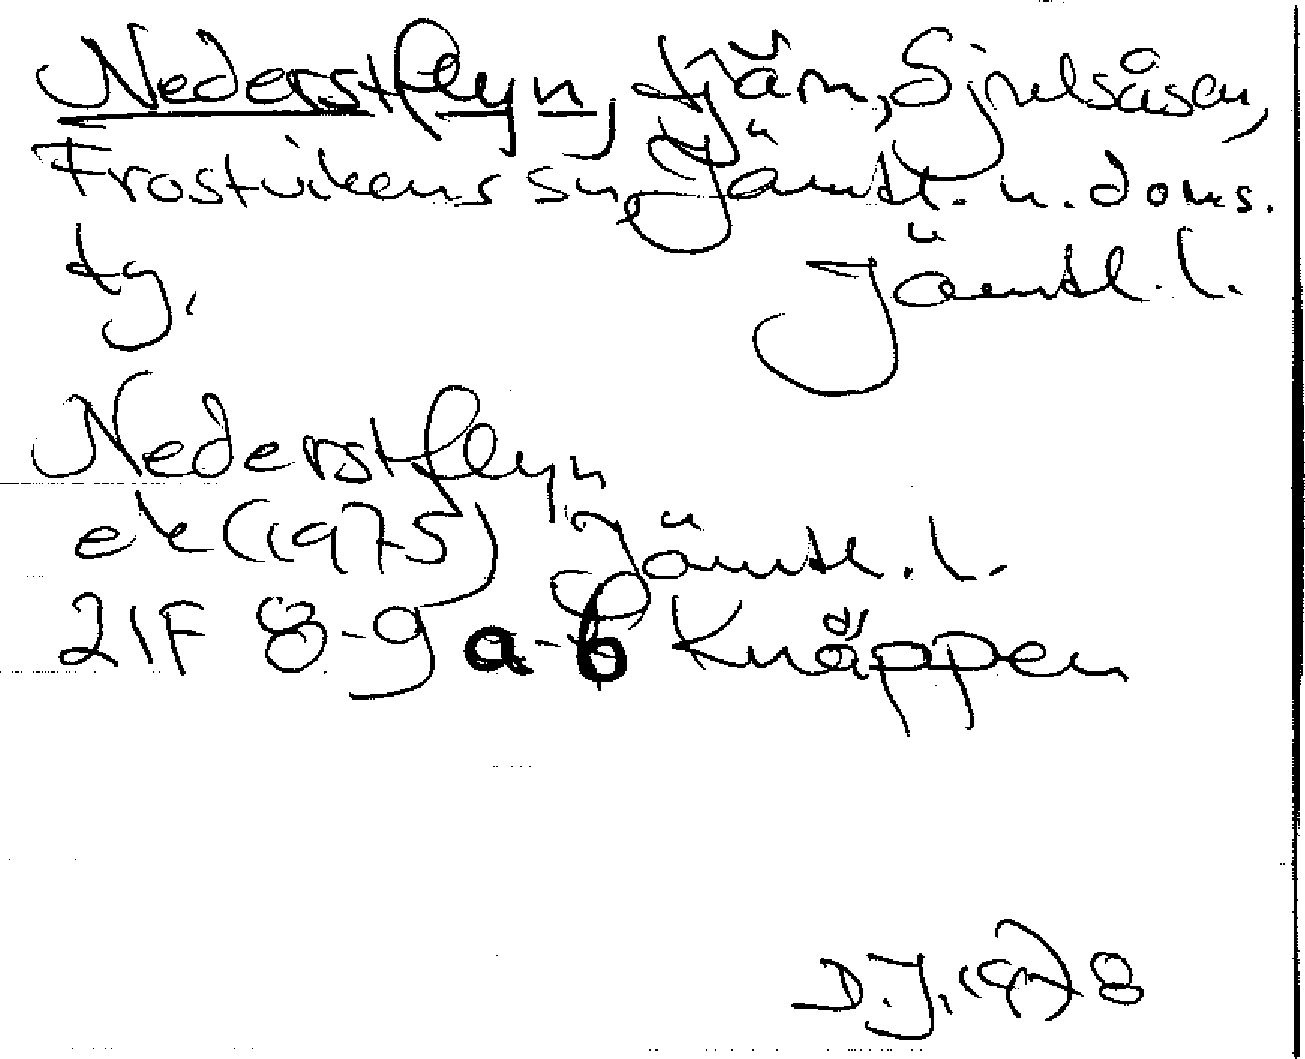 Nederstflyn, tjärn, Sjulsåsen,
Frostvikens sn, Jämtl. n. doms.
tg.
Jämtl. l.
Nederstflyn
ek (1975) Jämtl. l.
21F 8-9 a-b Knäppen
D.J. 1978